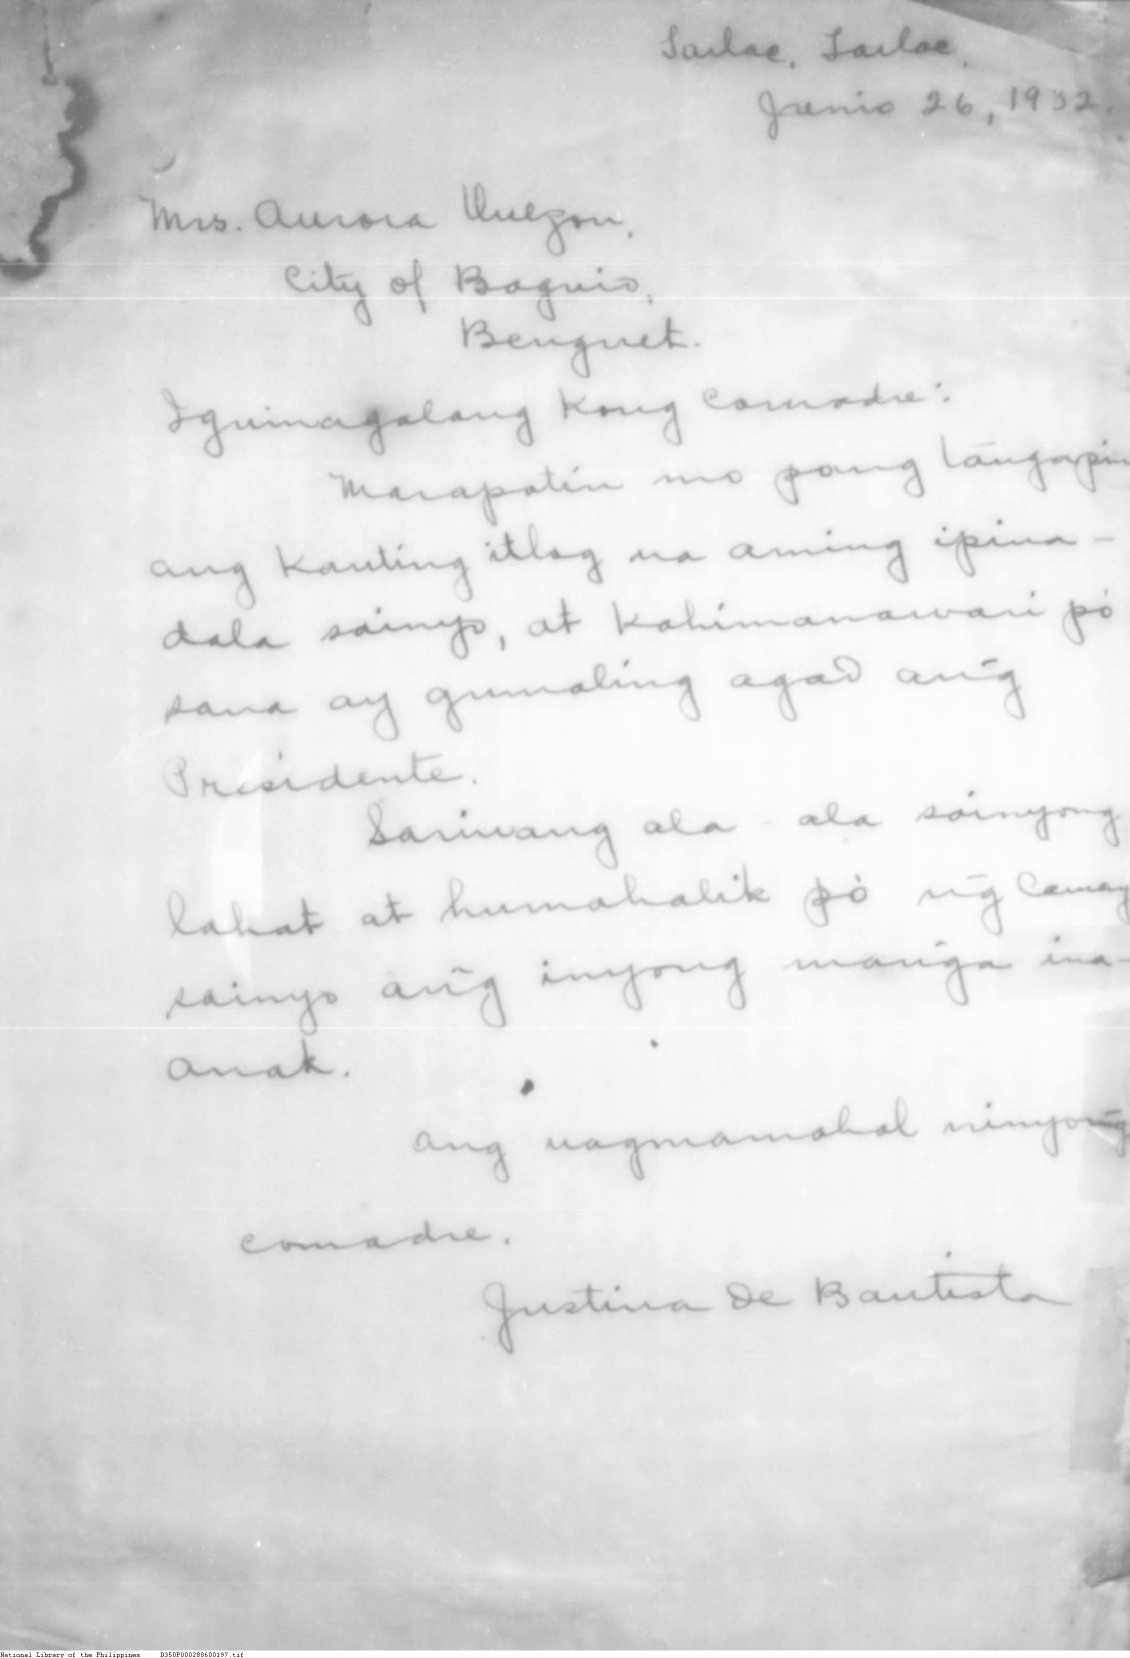 Tarlac, Tarlac,
Junio 26, 1932.
Mrs. Aurora Quezon,
City of Baguio,
Benguet.
Iguinagalang Kong Comadre:
Marapatin mo pong tangapin
ang kaunting itlog na aming ipina-
dala sainyo, at Kahimanawari pó
sana ay gumaling agad ang̃
Presidente.
Sariwang ala-ala sainyong
lahat at humahalik pó ng̃ Camay
sainyo ang̃ inyong mang̃a ina-
anak.
Ang nagmamahal ninyong̃
comadre.
Justina de Bautista
National Library of the Philippines D350P000288600197.tif